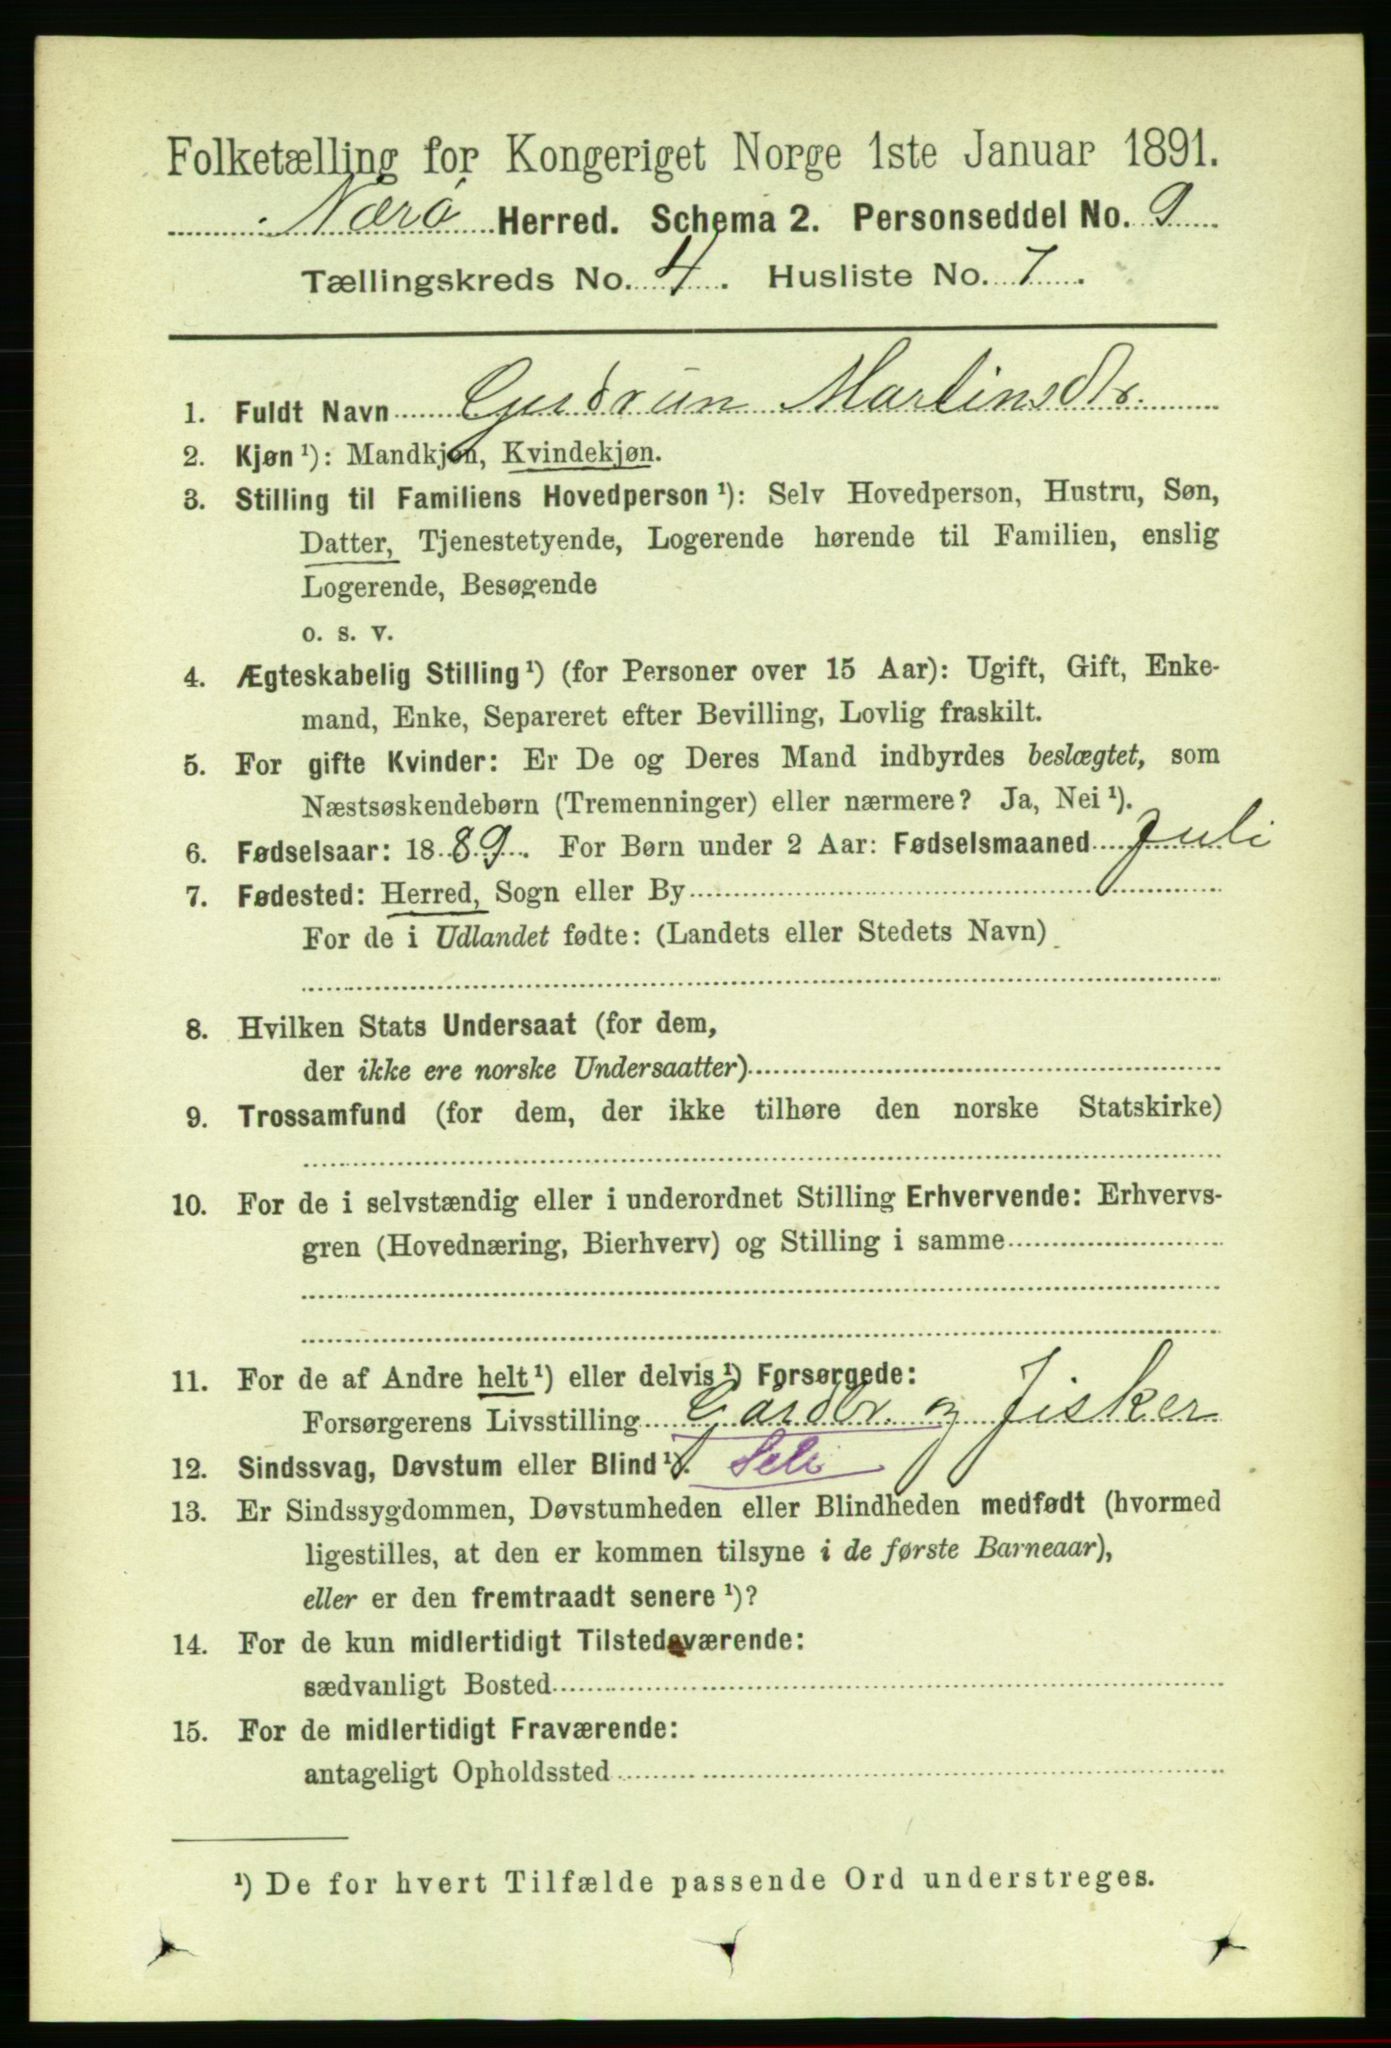 Folketælling for Kongeriget Norge 1ste Januar 1891.
Nærö Herred. Schema 2. Personseddel No. 9
Tællingskreds No. 4. Husliste No. 7.
1. Fuldt Navn Gudrun Martinsdtr.
2. Kjøn ¹): Mandkjøn, Kvindekjøn.
3. Stilling til Familiens Hovedperson ¹): Selv Hovedperson, Hustru, Søn,
Datter, Tjenestetyende, Logerende hørende til Familien, enslig
Logerende, Besøgende
o. s. v.
4. Ægteskabelig Stilling ¹) (for Personer over 15 Aar): Ugift, Gift, Enke-
mand, Enke, Separeret efter Bevilling, Lovlig fraskilt.
5. For gifte Kvinder: Er De og Deres Mand indbyrdes beslægtet, som
Næstsøskendebørn (Tremenninger) eller nærmere? Ja, Nei ¹).
6. Fødselsaar: 1889. For Børn under 2 Aar: Fødselsmaaned Juli
7. Fødested: Herred, Sogn eller By
For de i Udlandet fødte: (Landets eller Stedets Navn)
8. Hvilken Stats Undersaat (for dem,
der ikke ere norske Undersaatter)
9. Trossamfund (for dem, der ikke tilhøre den norske Statskirke)
10. For de i selvstændig eller i underordnet Stilling Erhvervende: Erhvervs-
gren (Hovednæring, Bierhverv) og Stilling i samme
11. For de af Andre helt ¹) eller delvis ¹) Forsørgede:
Forsørgerens Livsstilling Gårdbr. og Fisker
12. Sindssvag, Døvstum eller Blind ¹). Selv
13. Er Sindssygdommen, Døvstumheden eller Blindheden medfødt (hvormed
ligestilles, at den er kommen tilsyne i de første Barneaar),
eller er den fremtraadt senere ¹)?
14. For de kun midlertidigt Tilstedeværende:
sædvanligt Bosted
15. For de midlertidigt Fraværende:
antageligt Opholdssted
¹) De for hvert Tilfælde passende Ord understreges.